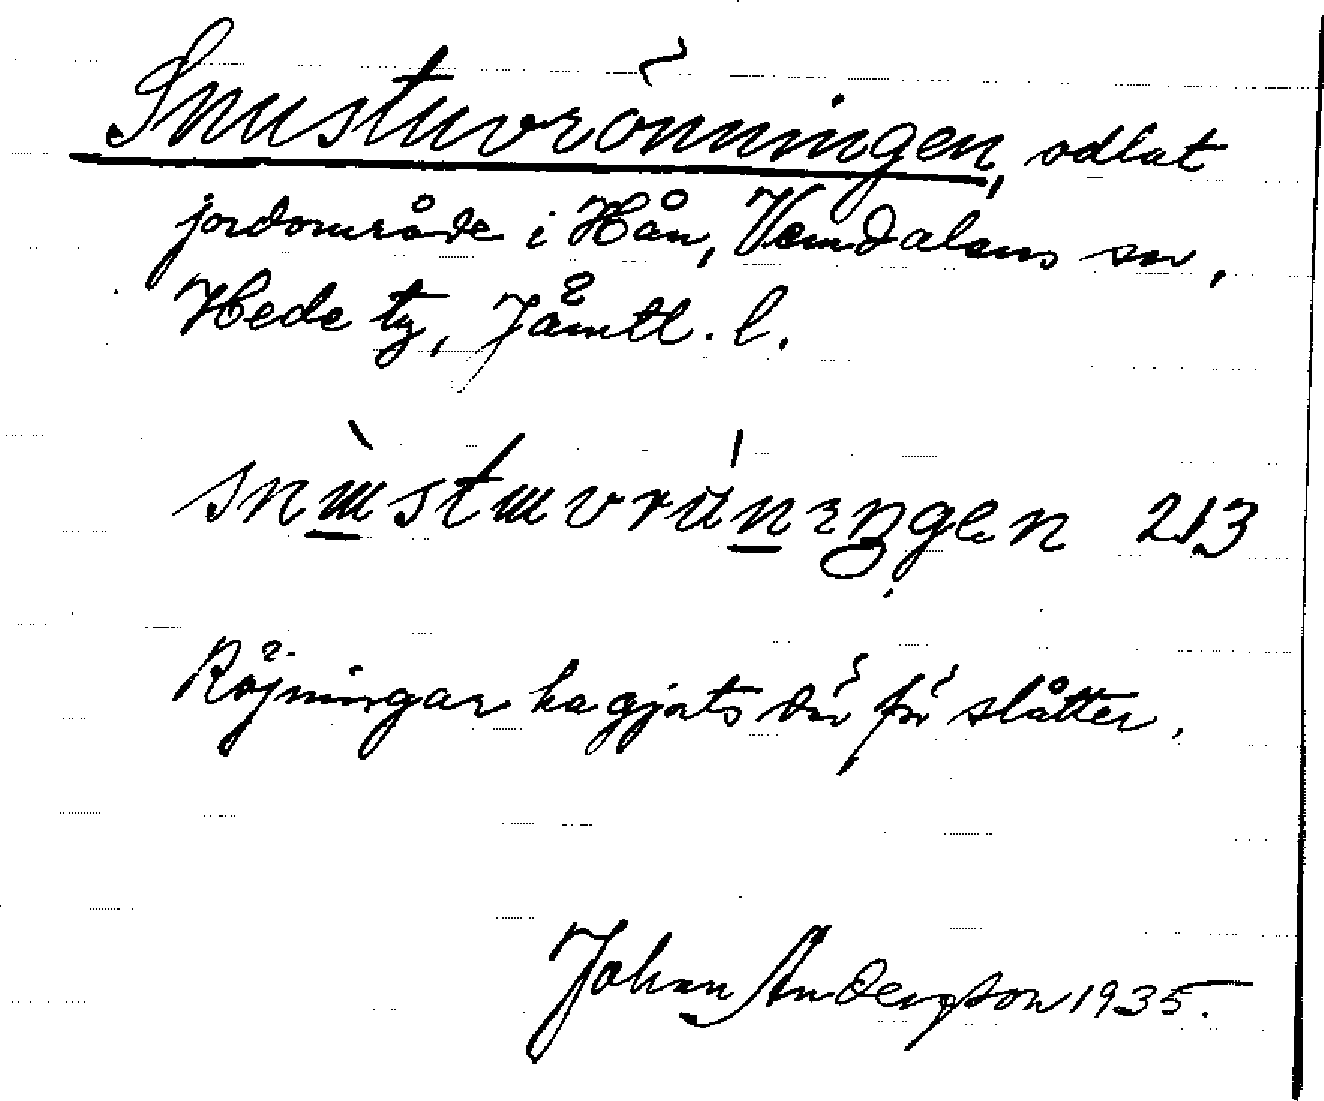 Snustuvrönningen, odlat
jordområde i Hån, Vemdalens sn,
Hede tg, Jämtl. l.
213
Röjningar ha gjorts där för slåtter.
Johan Anderson 1935.